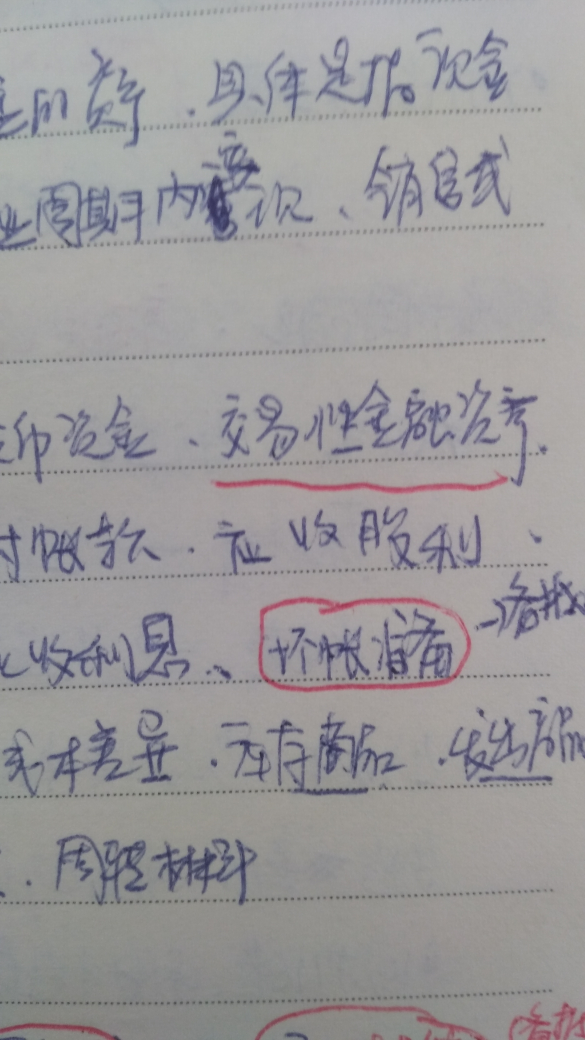 的资产、具体是指现金
业周期内变现、销售或
币资金、交易性金融资产、
付帐款、应收股利、
收利息、坏帐准备
成本差异、库存商品、发出商品
、周转材料